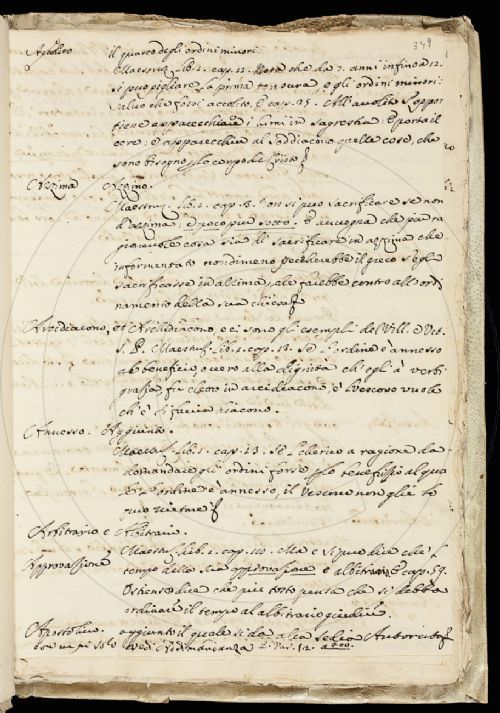 349
Accolito il quarto degli ordini minori.
Maestruz. lib. 1. cap. 12. Nota che da 7. anni infino a 12.
si può pigliare la prima tonsura, e gli ordini minori:
salvo che forsi accolito. E cap. 25. All'accolito s'appar
tiene apparecchiare i lumi in sagrestia. E porta il
cero: e apparecchia al soddiacono quelle cose, che
sono bisogno
Azzima Azzimo.
Maestruz. lib. 1. cap. 8. Non si può sacrificare se non
d'azzima: e poco più sotto. E avvegna che più ra
gionevole cosa sia di sacrificare in azzima che
informentato nondimeno peccherebbe il greco s'egli
sacrificasse in azzima, che farebbe contro all'ordi
namento della sua chiesa
Arcidiacono, et Archidiacono, e ci sono gli esempli del Vill. e Vit.
S. P. Maestruz. lib. 1. cap. 13. Se l'ordine è annesso
al beneficio, overo alla dignità ch'egli à verbi
grazia fu eletto in arcidiacono, e 'l vescovo vuole
ch'e' si faccia diacono.
Annesso. Aggiunta.
Maestruz. lib. 1. cap. 13. Se 'l cherico a ragione da
domandare gli ordini forse beneficio al qua
le l'ordine è annesso, il vescovo non glie le
può vietare
Arbitrario e Albitrario.
Approvassione Maestruz. lib. 1. cap. 14. Ma e si può dire che 'l
tempo della sua approvasione è albitrario. E cap. 59.
Ostensedice che più tosto pensa che si debba
ordinare il tempo al albitrario
Apostolico. aggiunto il quale si da alla sedia
vedi Adimandanza